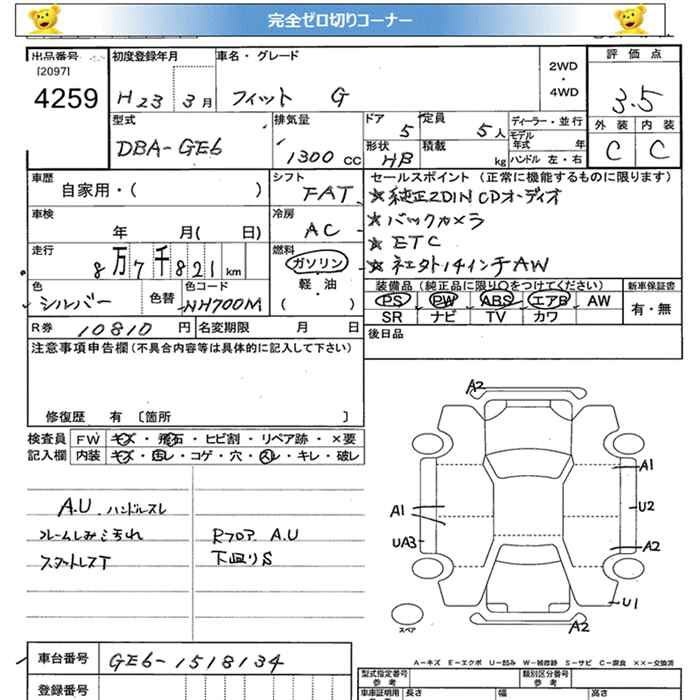 完全ゼロ切りコーナー
出品番号
[2097]
4259
初度登録年月
H 23 3月
車名・グレード
フィット G
2WD
・
4WD
評価点
3.5
型式
DBA-GE6
排気量
1300 CC
ドア 5
定員 5人
形状 HB
積載 kg
ディーラー・並行
モデル年式 年
ハンドル 左・右
外装 内装
C C
車歴
自家用・( )
シフト
FAT
セールスポイント (正常に機能するものに限ります)
☆純正2DIN CDオーディオ
☆バックカメラ
☆ETC
14インチAW
車検
年 月( 日)
冷房
AC
走行
8万7千821km
燃料
ガソリン
・
軽・油
( )
色
シルバー
色替
色コード
NH700M
装備品 (純正品に限り○をつけてください)
PS PW ABS エアB AW
SR ナビ TV カワ
新車保証書
有・無
R券 10810 円
名変期限 月 日
後日品
注意事項申告欄 (不具合内容等は具体的に記入して下さい)
修復歴 有 〔箇所 〕
検査員
記入欄
FW キズ・飛石・ヒビ割・リペア跡・×要
内装 キズ・汚レ・コゲ・穴・スレ・キレ・破レ
A.U ハンドルスレ
フレームしみ 汚れ
Rフロア A.U
下廻りS
A2
A1
A1
U2
UA3
A2
U1
A2
スペア
A-キズ E-エクボ U-凹み W-補修跡 S-サビ C-腐食 ××-交換済
車台番号
GE6-1518134
登録番号
型式指定番号
参考
類別区分番号
参考
車庫証明用
参考
長さ 幅 高さ